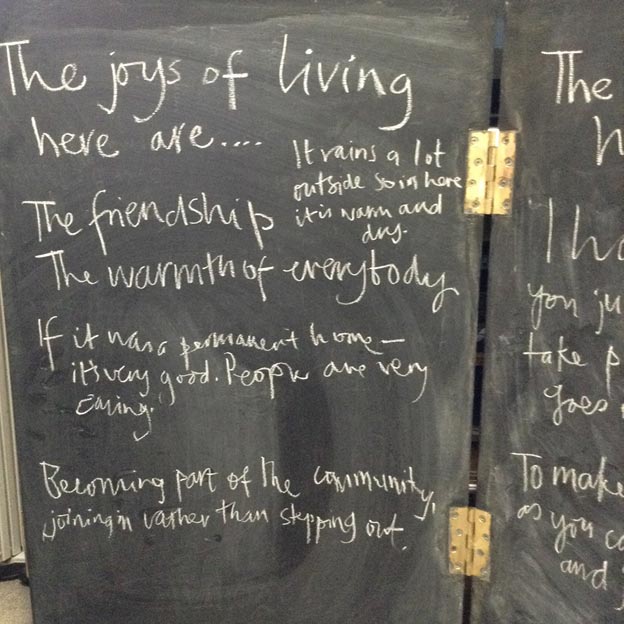 The joys of living
here are....
It rains a lot
outside so in here
it is warm and
dry.
The friendship
The warmth of everybody
If it was a permanent home —
it's very good. People are very
caring.
Becoming part of the community,
joining in rather than stepping out.
The
I
you
take
goes
To make
as you
and